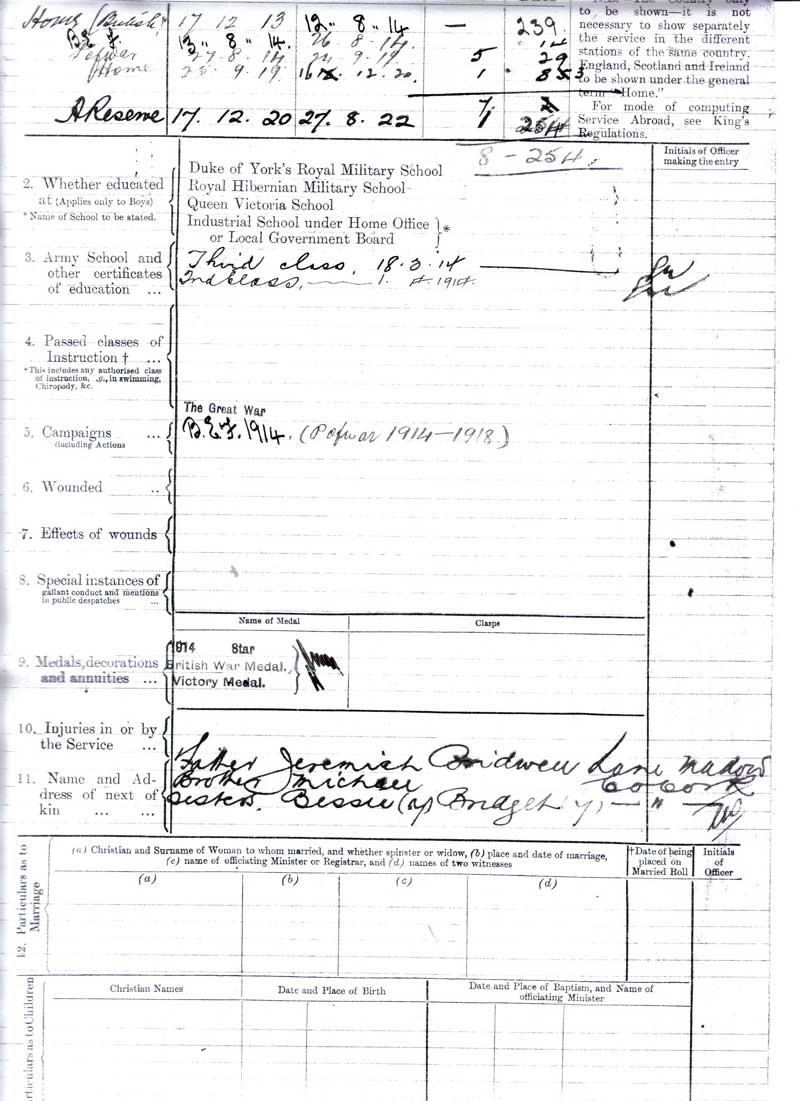 Home (British) 17 12 13 12 " 8 " 14 — 239
to be shown—it is not
B.E.F. 13 " 8 " 14. 26 8 14 14
necessary to show separately
the service in the different
Pofwar 27 . 8 . 14 24 9 19 5 29
stations of the same country.
England, Scotland and Ireland
Home 25 . 9 . 19 16 12 . 20 1 83
to be shown under the general
term "Home."
A Reserve 17. 12. 20 27. 8. 22 1 254
For mode of computing
Service Abroad, see King's
Regulations.
8 - 254
Initials of Officer
making the entry
2. Whether educated
at (Applies only to Boys)
* Name of School to be stated.
Duke of York's Royal Military School
Royal Hibernian Military School
Queen Victoria School
Industrial School under Home Office
or Local Government Board
*
3. Army School and
other certificates
of education ...
Third class, 18.3.14
2nd class, 1. 4. 1914.
4. Passed classes of
Instruction † ...
† This includes any authorised class
of instruction, .g., in swimming,
Chiropody, &c.
The Great War
5. Campaigns ...
(including Actions
B.E.F. 1914. (Pofwar 1914—1918)
6. Wounded ..
7. Effects of wounds
8. Special instances of
gallant conduct and mentions
in public despatches ...
Name of Medal Clasps
9. Medals, decorations
and annuities ...
1914 Star
British War Medal.
Victory Medal.
10. Injuries in or by
the Service ...
11. Name and Ad-
dress of next of
kin ... ...
Father Jeremiah Bridwell Lane
Brother Michael Co Cork
Sisters. Bessie (y) Bridget (y) — " —
12. Particulars as to
Marriage
(a) Christian and Surname of Woman to whom married, and whether spinster or widow, (b) place and date of marriage,
(c) name of officiating Minister or Registrar, and (d) names of two witnesses
†Date of being
placed on
Married Roll
Initials
of
Officer
(a) (b) (c) (d)
rticulars as to Children
Christian Names
Date and Place of Birth
Date and Place of Baptism, and Name of
officiating Minister